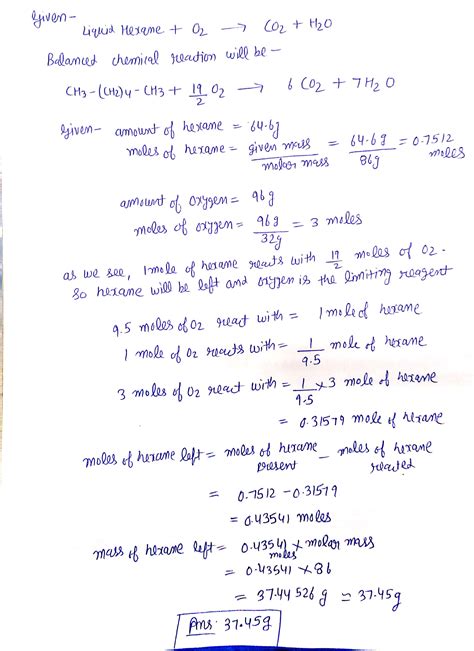 Given-
Liquid Hexane + O2 → CO2 + H2O
Balanced chemical reaction will be -
CH3-(CH2)4-CH3 + 19/2 O2 → 6 CO2 + 7H2O
Given- amount of hexane = 64.6g
moles of hexane = given mass/molar mass = 64.6g/86g = 0.7512 moles
amount of oxygen = 96g
moles of oxygen = 96g/32g = 3 moles
as we see, 1mole of hexane reacts with 19/2 moles of O2.
So hexane will be left and oxygen is the limiting reagent
9.5 moles of O2 react with = 1 mole of hexane
1 mole of O2 reacts with = 1/9.5 mole of hexane
3 moles of O2 react with = 1/9.5 x 3 mole of hexane
= 0.31579 mole of hexane
moles of hexane left = moles of hexane present - moles of hexane reacted
= 0.7512 - 0.31579
= 0.43541 moles
mass of hexane left = 0.43541 moles x molar mass
= 0.43541 x 86
= 37.44526 g ≃ 37.45g
Ans: 37.45g